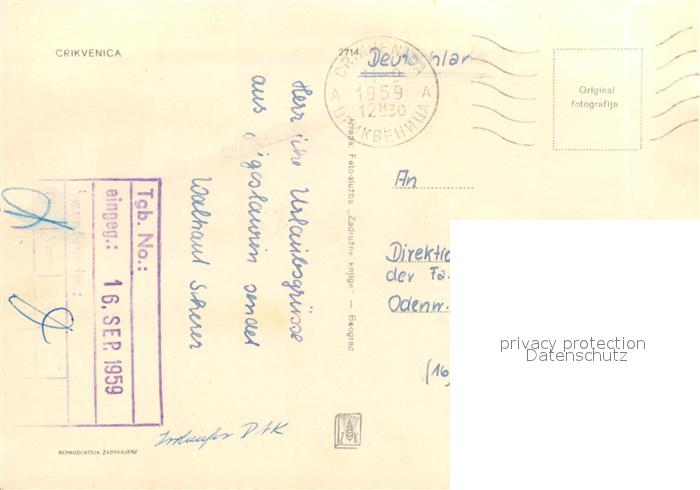 CRIKVENICA
2714
Deutschlan
CRIKVENICA
11-9
1959
12H30
A A
ЦРИКВЕНИЦА
Original
fotografija
Herzliche Urlaubsgrüsse
aus Jugoslawien sendet
Waltraut Scherer
Izrada: Foto-služba „Zadružne knjige" — Beograd
An
Direktio
der Fa.
Odenw.
(16
Tgb. No.:
eingeg.: 16. SEP. 1959
DAK
Z K
REPRODUKCIJA ZABRANJENA
privacy protection
Datenschutz